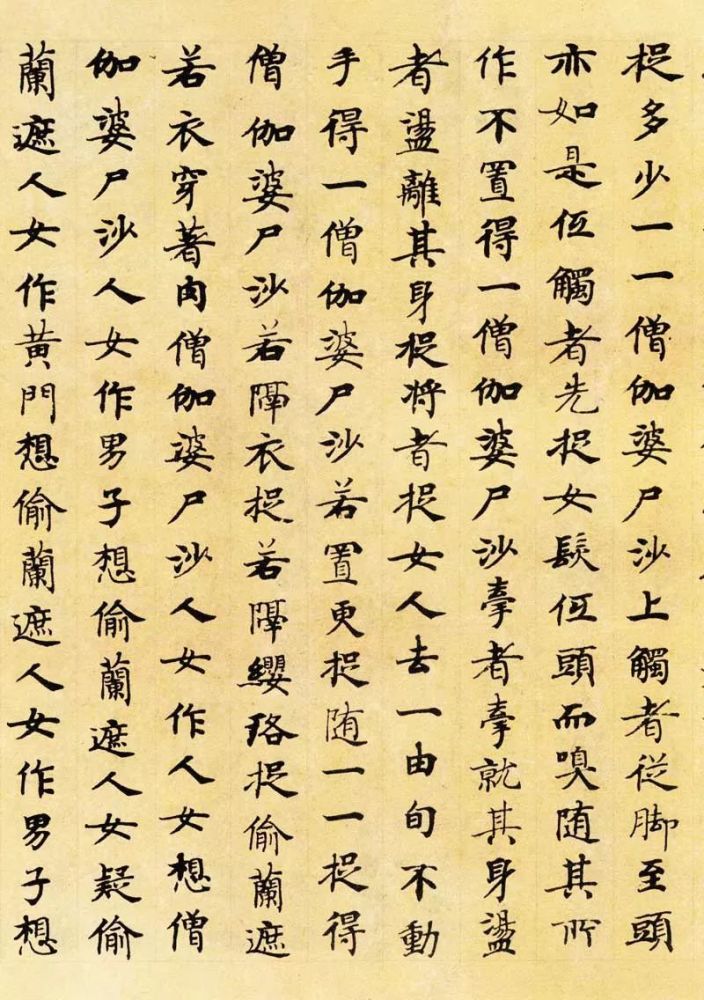 捉多少一一僧伽婆尸沙上觸者從脚至頭
亦如是低觸者先捉女髮低頭而嗅随其所
作不置得一僧伽婆尸沙牽者牽就其身盪
者盪離其身捉將者捉女人去一由旬不動
手得一僧伽婆尸沙若置更捉随一一捉得
僧伽婆尸沙若隔衣捉若隔纓珞捉偷蘭遮
若衣穿著肉僧伽婆尸沙人女作人女想僧
伽婆尸沙人女作男子想偷蘭遮人女疑偷
蘭遮人女作黃門想偷蘭遮人女作男子想